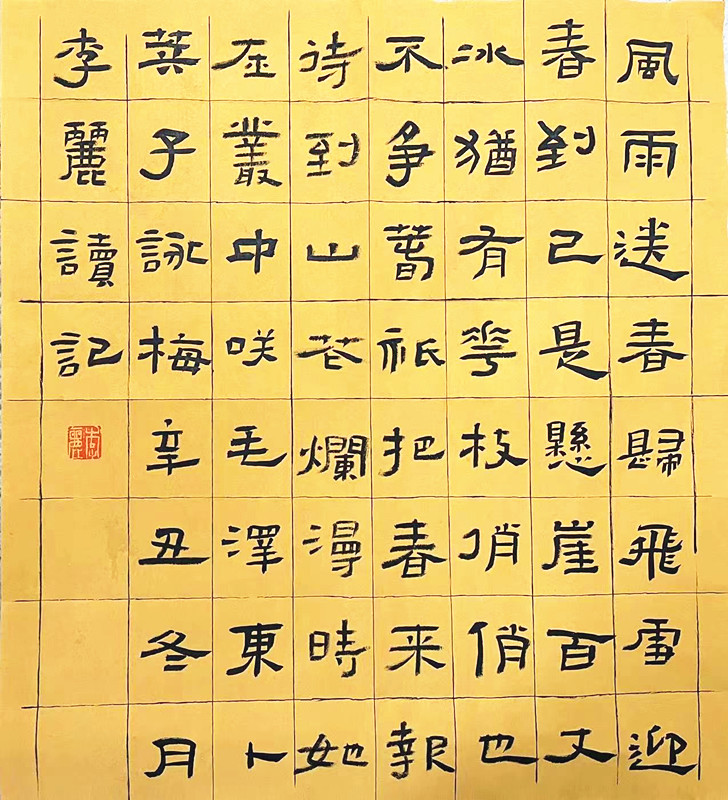 風雨送春歸飛雪迎
春到已是懸崖百丈
冰猶有華枝俏俏也
不争萅祇把春来報
待到山花爛漫時她
在叢中咲毛澤東卜
算子詠梅辛丑冬月
李麗讀記